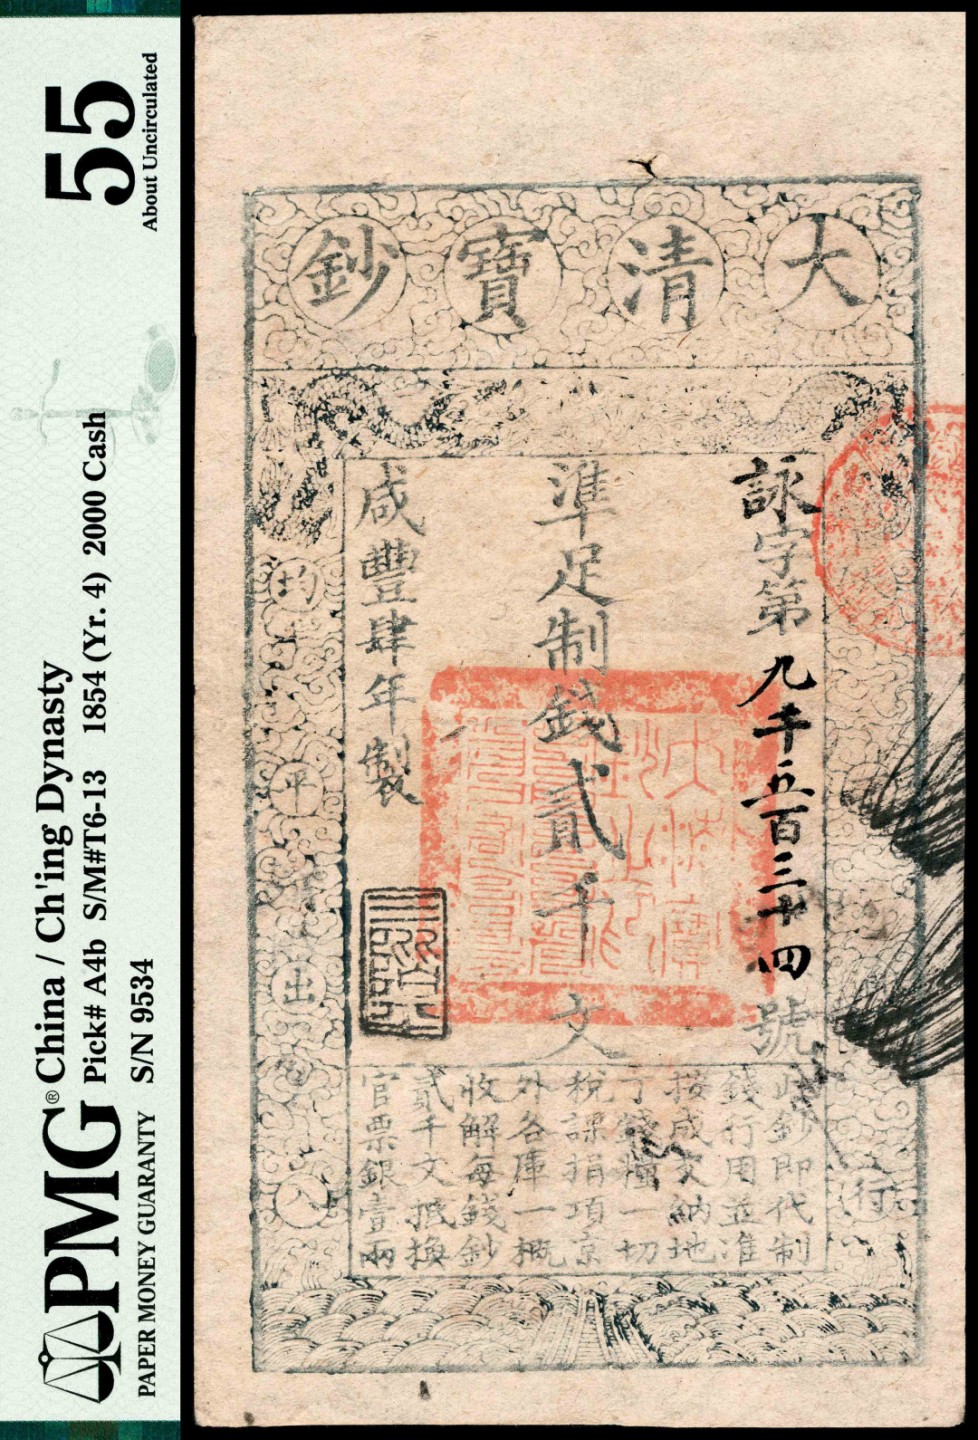 PMG®
PAPER MONEY GUARANTY
China / Ch'ing Dynasty
Pick# A4b S/M#T6-13 1854 (Yr. 4) 2000 Cash
S/N 9534
55
About Uncirculated
大清寶鈔
詠字第九千五百三十四號
準足制錢貳千文
咸豐肆年製
此鈔即代制
錢行用並准
按成交納地
丁錢糧一切
稅課捐項京
外各庫一概
收解每錢鈔
貳千文抵換
官票銀壹兩
均平出入
行